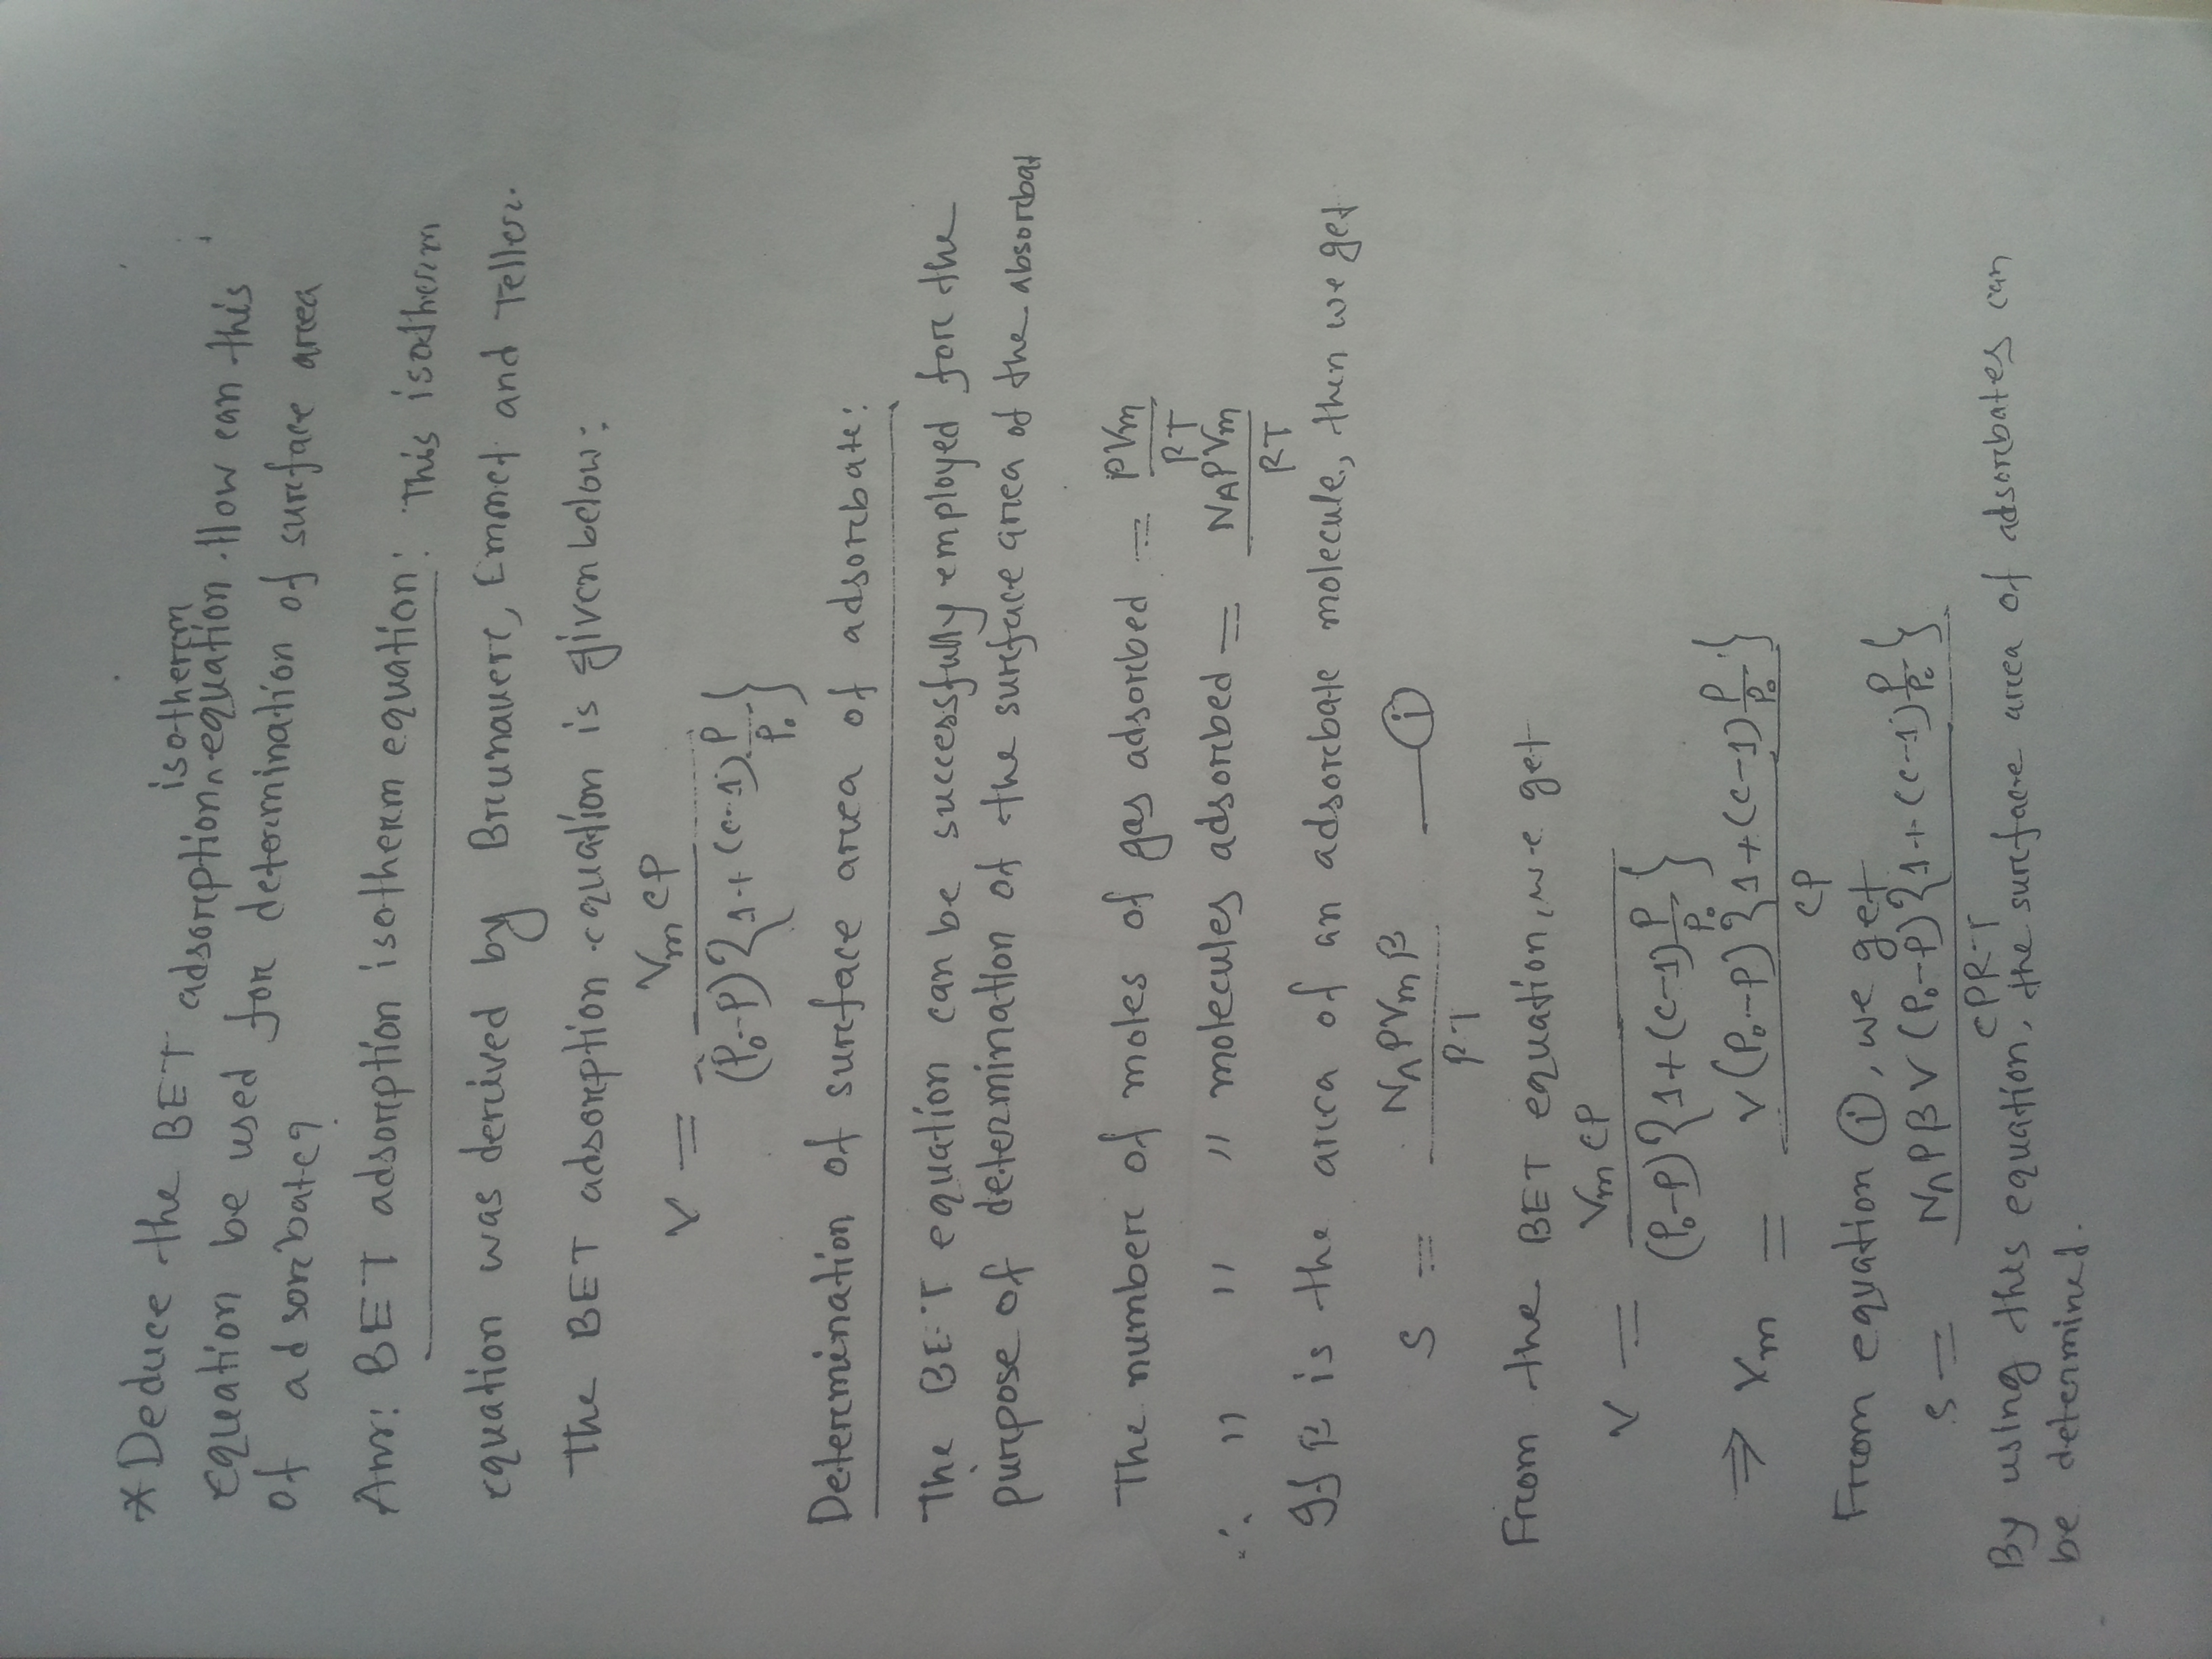 * Deduce the BET adsorption isotherm equation. How can this
equation be used for determination of surface area
of adsorbate?
Ans: BET adsorption isotherm equation: This isotherm
equation was derived by Brunauer, Emmet and Teller.
The BET adsorption equation is given below:
V = VmCP / (P₀-P){1+(C-1)P/P₀}
Determination of surface area of adsorbate:
The BET equation can be successfully employed for the
purpose of determination of the surface area of the absorbat
The number of moles of gas adsorbed = PVm/RT
∴ " " " molecules adsorbed = NAPVm/RT
If β is the area of an adsorbate molecule, then we get
S = NAPVmβ/RT —— (i)
From the BET equation, we get
V = VmCP / (P₀-P){1+(C-1)P/P₀}
⇒ Vm = V(P₀-P){1+(C-1)P/P₀} / CP
From equation (i), we get
S = NAPβV(P₀-P){1+(C-1)P/P₀} / CPRT
By using this equation, the surface area of adsorbates can
be determined.